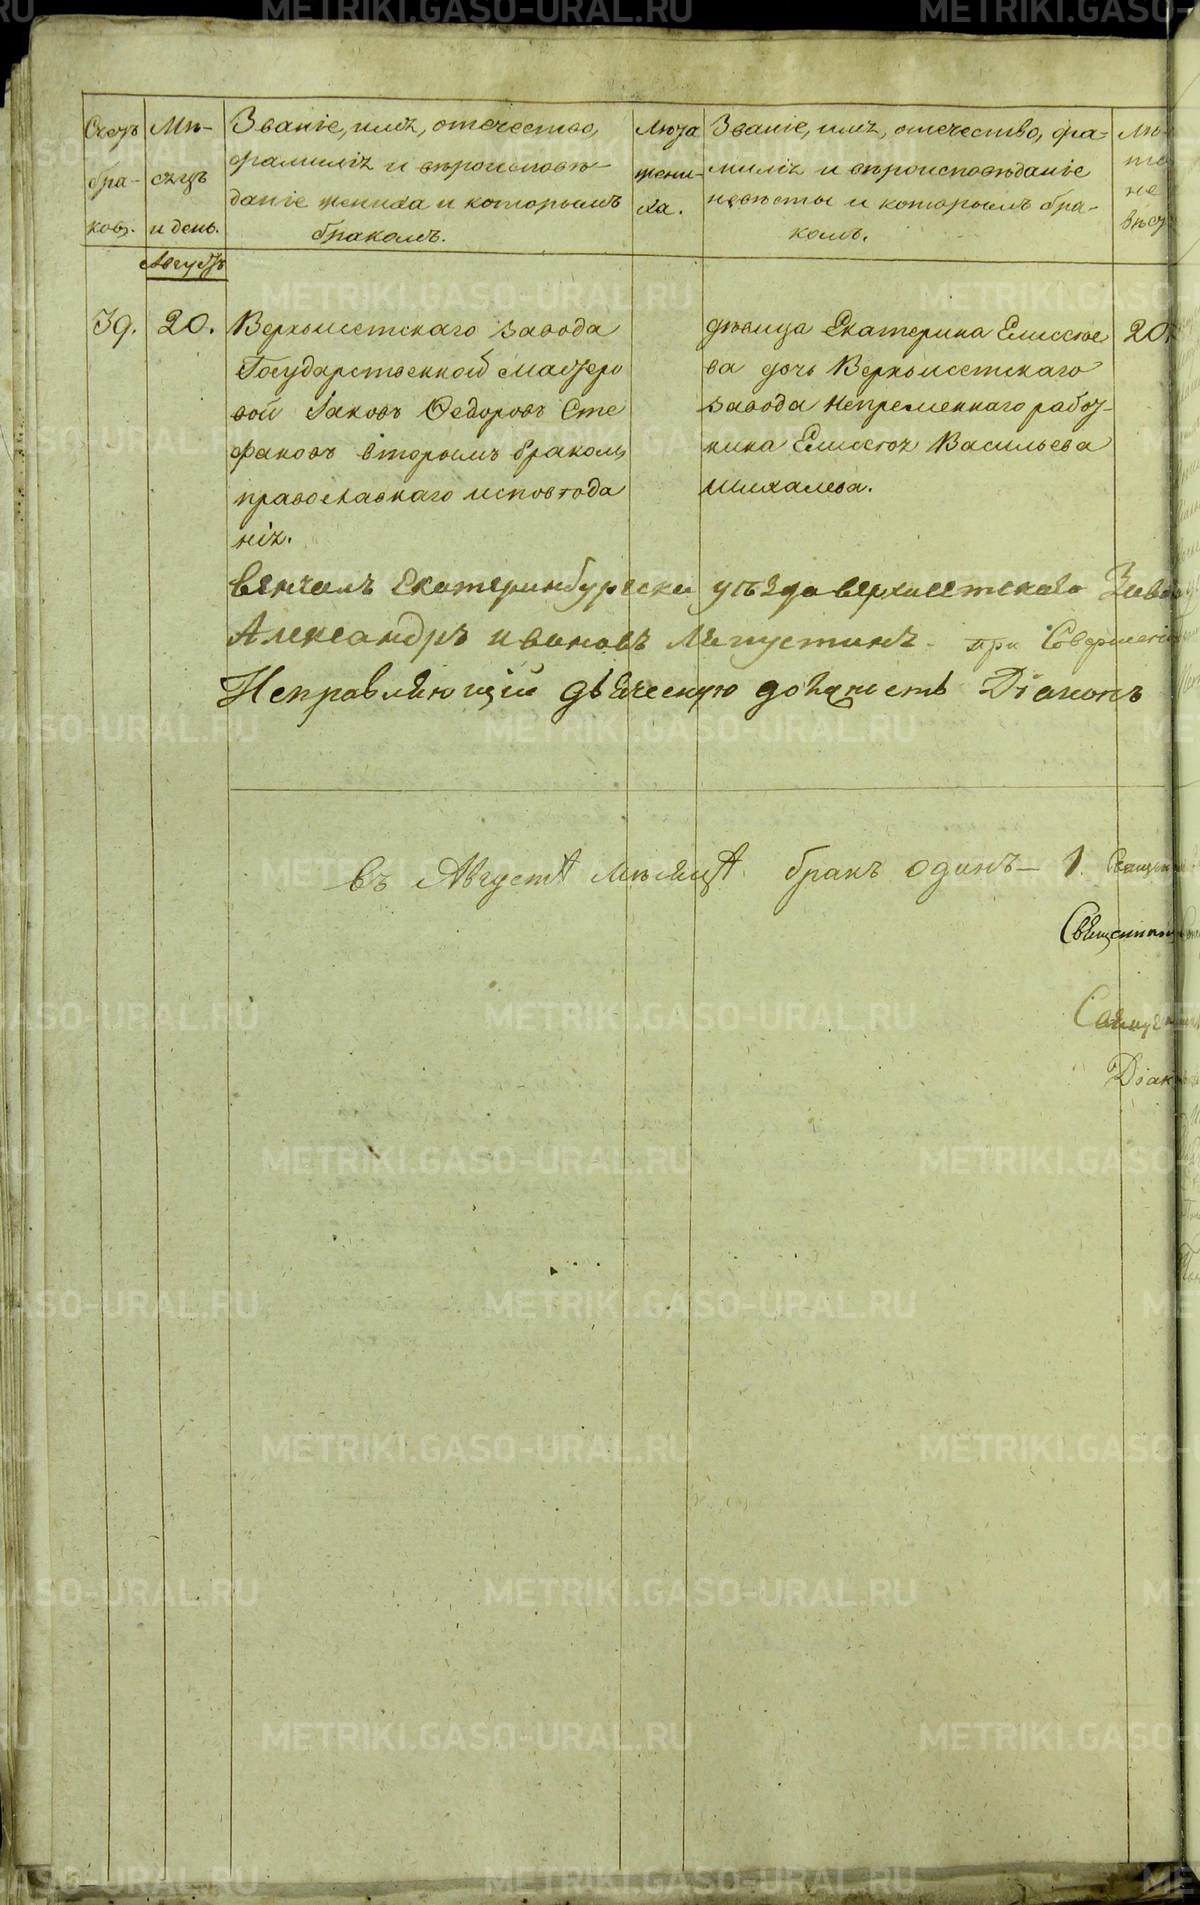 Счетъ бра- ковъ.
Мѣ- сяцъ и день.
Званіе, имя, отечество,
фамилія и вѣроисповѣ-
даніе жениха и которымъ
бракомъ.
Лѣта жени- ха.
Званіе, имя, отечество, фа-
милія и вѣроисповѣданіе
невѣсты и которымъ бра-
комъ.
Августъ
39. 20.
Верхъисетскаго завода
Государственной мастеро
вой Іаковъ Ѳедоровъ Сте
фановъ вторымъ бракомъ
православнаго исповѣда
нія.
дѣвица Екатерина Елисѣе
ва дочь Верхъисетскаго
завода непременнаго работ-
ника Елисѣя Васильева
Шихалева.
20.
Венчалъ Екатеринбурски уѣзда верхисетскаго
Александръ Ивановъ при
Исправляющій дьяческую должность Діаконъ
въ Августѣ мѣсяцѣ бракъ одинъ — 1.
METRIKI.GASO-URAL.RU